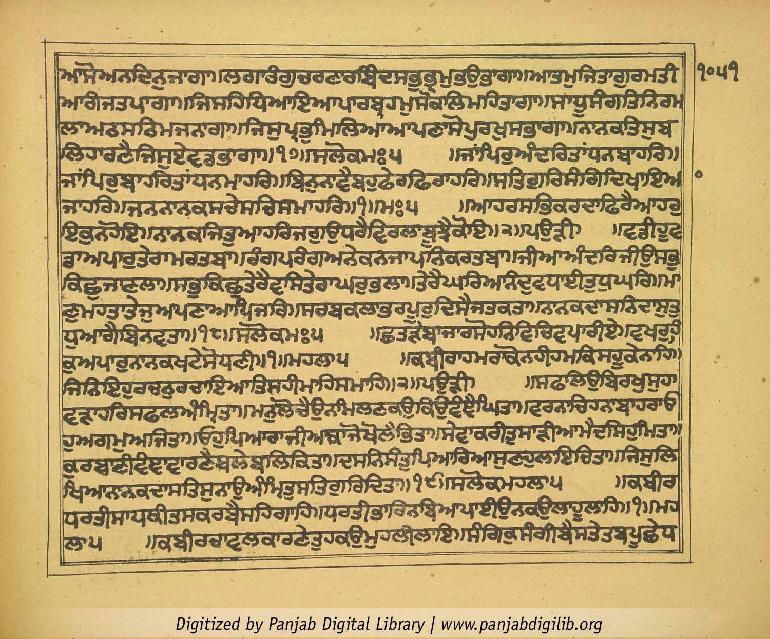 ਆਸੋਅਨਦਿਨੁਜਾਗਾ॥ਲਗਾਰੰਗੁਚਰਣਾਰਬਿੰਦਸਭੁਭ੍ਰਮੁਭਉਭਾਗਾ॥ਆਤਮੁਜਿਤਾਗੁਰਮਤੀ ੧੦੫੧
ਆਗੰਜਤਪਾਗਾ॥ਜਿਸਹਿਧਿਆਇਆਪਾਰਬ੍ਰਹਮੁਸੋਕਲਿਮਹਿਤਾਗਾ॥ਸਾਧੂਸੰਗਤਿਨਿਰਮ
ਲਾਅਠਸਠਿਮਜਨਾਗਾ॥ਜਿਸੁਪ੍ਰਭੁਮਿਲਿਆਆਪਣਾਸੋਪੁਰਖੁਸਭਾਗਾ॥ਨਾਨਕਤਿਸੁਬ
ਲਿਹਾਰਣੈਜਿਸੁਏਵਡਭਾਗਾ॥੧੭॥ਸਲੋਕਮਃ੫ ॥ਜਾਂਪਿਰੁਅੰਦਰਿਤਾਂਧਨਬਾਹਰਿ॥
ਜਾਂਪਿਰੁਬਾਹਰਿਤਾਂਧਨਮਾਹਰਿ॥ਬਿਨੁਨਾਵੈਬਹੁਫੇਰਫਿਰਾਹਰਿ॥ਸਤਿਗੁਰਿਸੰਗਿਦਿਖਾਇਆ
ਜਾਹਰਿ॥ਜਨਨਾਨਕਸਚੇਸਚਿਸਮਾਹਰਿ॥੧॥ਮਃ੫ ॥ਆਹਰਸਭਿਕਰਦਾਫਿਰੈਆਹਰੁ
ਇਕੁਨਹੋਇ॥ਨਾਨਕਜਿਤੁਆਹਰਿਜਗੁਉਧਰੈਵਿਰਲਾਬੂਝੈਕੋਇ॥੨॥ਪਉੜੀ ॥ਵਡੀਹੂਵਡ
ਡਾਅਪਾਰੁਤੇਰਾਮਰਤਬਾ॥ਰੰਗਪਰੰਗਅਨੇਕਨਜਾਪਨਿਕਰਤਬਾ॥ਜੀਆਅੰਦਰਿਜੀਉਸਭੁ
ਕਿਛੁਜਾਣਲਾ॥ਸਭੁਕਿਛੁਤੇਰੈਵਸਿਤੇਰਾਘਰੁਭਲਾ॥ਤੇਰੈਘਰਿਆਨੰਦੁਵਧਾਈਤੁਧੁਘਰਿ॥ਮਾ
ਣੁਮਹਤਾਤੇਜੁਆਪਣਾਆਪਿਜਰਿ॥ਸਰਬਕਲਾਭਰਪੂਰੁਦਿਸੈਜਤਕਤਾ॥ਨਾਨਕਦਾਸਨਿਦਾਸੁਤੁ
ਧੁਆਗੈਬਿਨਵਤਾ॥੧੮॥ਸਲੋਕਮਃ੫ ॥ਛਤੜੇਬਾਜਾਰਸੋਹਨਿਵਿਚਿਵਪਾਰੀਏ॥ਵਖਰੁਹਿ
ਕੁਅਪਾਰੁਨਾਨਕਖਟੇਸੋਧਣੀ॥੧॥ਮਹਲਾ੫ ॥ਕਬੀਰਾਹਮਰਾਕੋਨਹੀਹਮਕਿਸਹੂਕੇਨਾਹਿ॥
ਜਿਨਿਇਹੁਰਚਨੁਰਚਾਇਆਤਿਸਹੀਮਾਹਿਸਮਾਹਿ॥੨॥ਪਉੜੀ ॥ਸਫਲਿਉਬਿਰਖੁਸੁਹਾ
ਵੜਾਹਰਿਸਫਲਅੰਮ੍ਰਿਤਾ॥ਮਨੁਲੋਚੈਉਨੑਮਿਲਣਕਉਕਿਉਵੰਞੈਘਿਤਾ॥ਵਰਨਾਚਿਹਨਾਬਾਹਰਾਓ
ਹੁਅਗਮੁਅਜਿਤਾ॥ਓਹੁਪਿਆਰਾਜੀਅਕਾਜੋਖੋਲੈਭਿਤਾ॥ਸੇਵਾਕਰੀਤੁਸਾੜੀਆਮੈਦਸਿਹੁਮਿਤਾ॥
ਕੁਰਬਾਣੀਵੰਞਾਵਾਰਣੈਬਲੇਬਲਿਕਿਤਾ॥ਦਸਨਿਸੰਤਪਿਆਰਿਆਸੁਣਹੁਲਾਇਚਿਤਾ॥ਜਿਸੁਲਿ
ਖਿਆਨਾਨਕਦਾਸਤਿਸੁਨਾਉਅੰਮ੍ਰਿਤੁਸਤਿਗੁਰਿਦਿਤਾ॥੧੯॥ਸਲੋਕਮਹਲਾ੫ ॥ਕਬੀਰ
ਧਰਤੀਸਾਧਕੀਤਸਕਰਬੈਸਹਿਗਾਹਿ॥ਧਰਤੀਭਾਰਿਨਬਿਆਪਈਉਨਕਉਲਾਹੂਲਾਹਿ॥੧॥ਮਹ
ਲਾ੫ ॥ਕਬੀਰਚਾਵਲਕਾਰਣੇਤੁਖਕਉਮੁਹਲੀਲਾਇ॥ਸੰਗਿਕੁਸੰਗੀਬੈਸਤੇਤਬਪੂਛੇਧ
Digitized by Panjab Digital Library | www.panjabdigilib.org